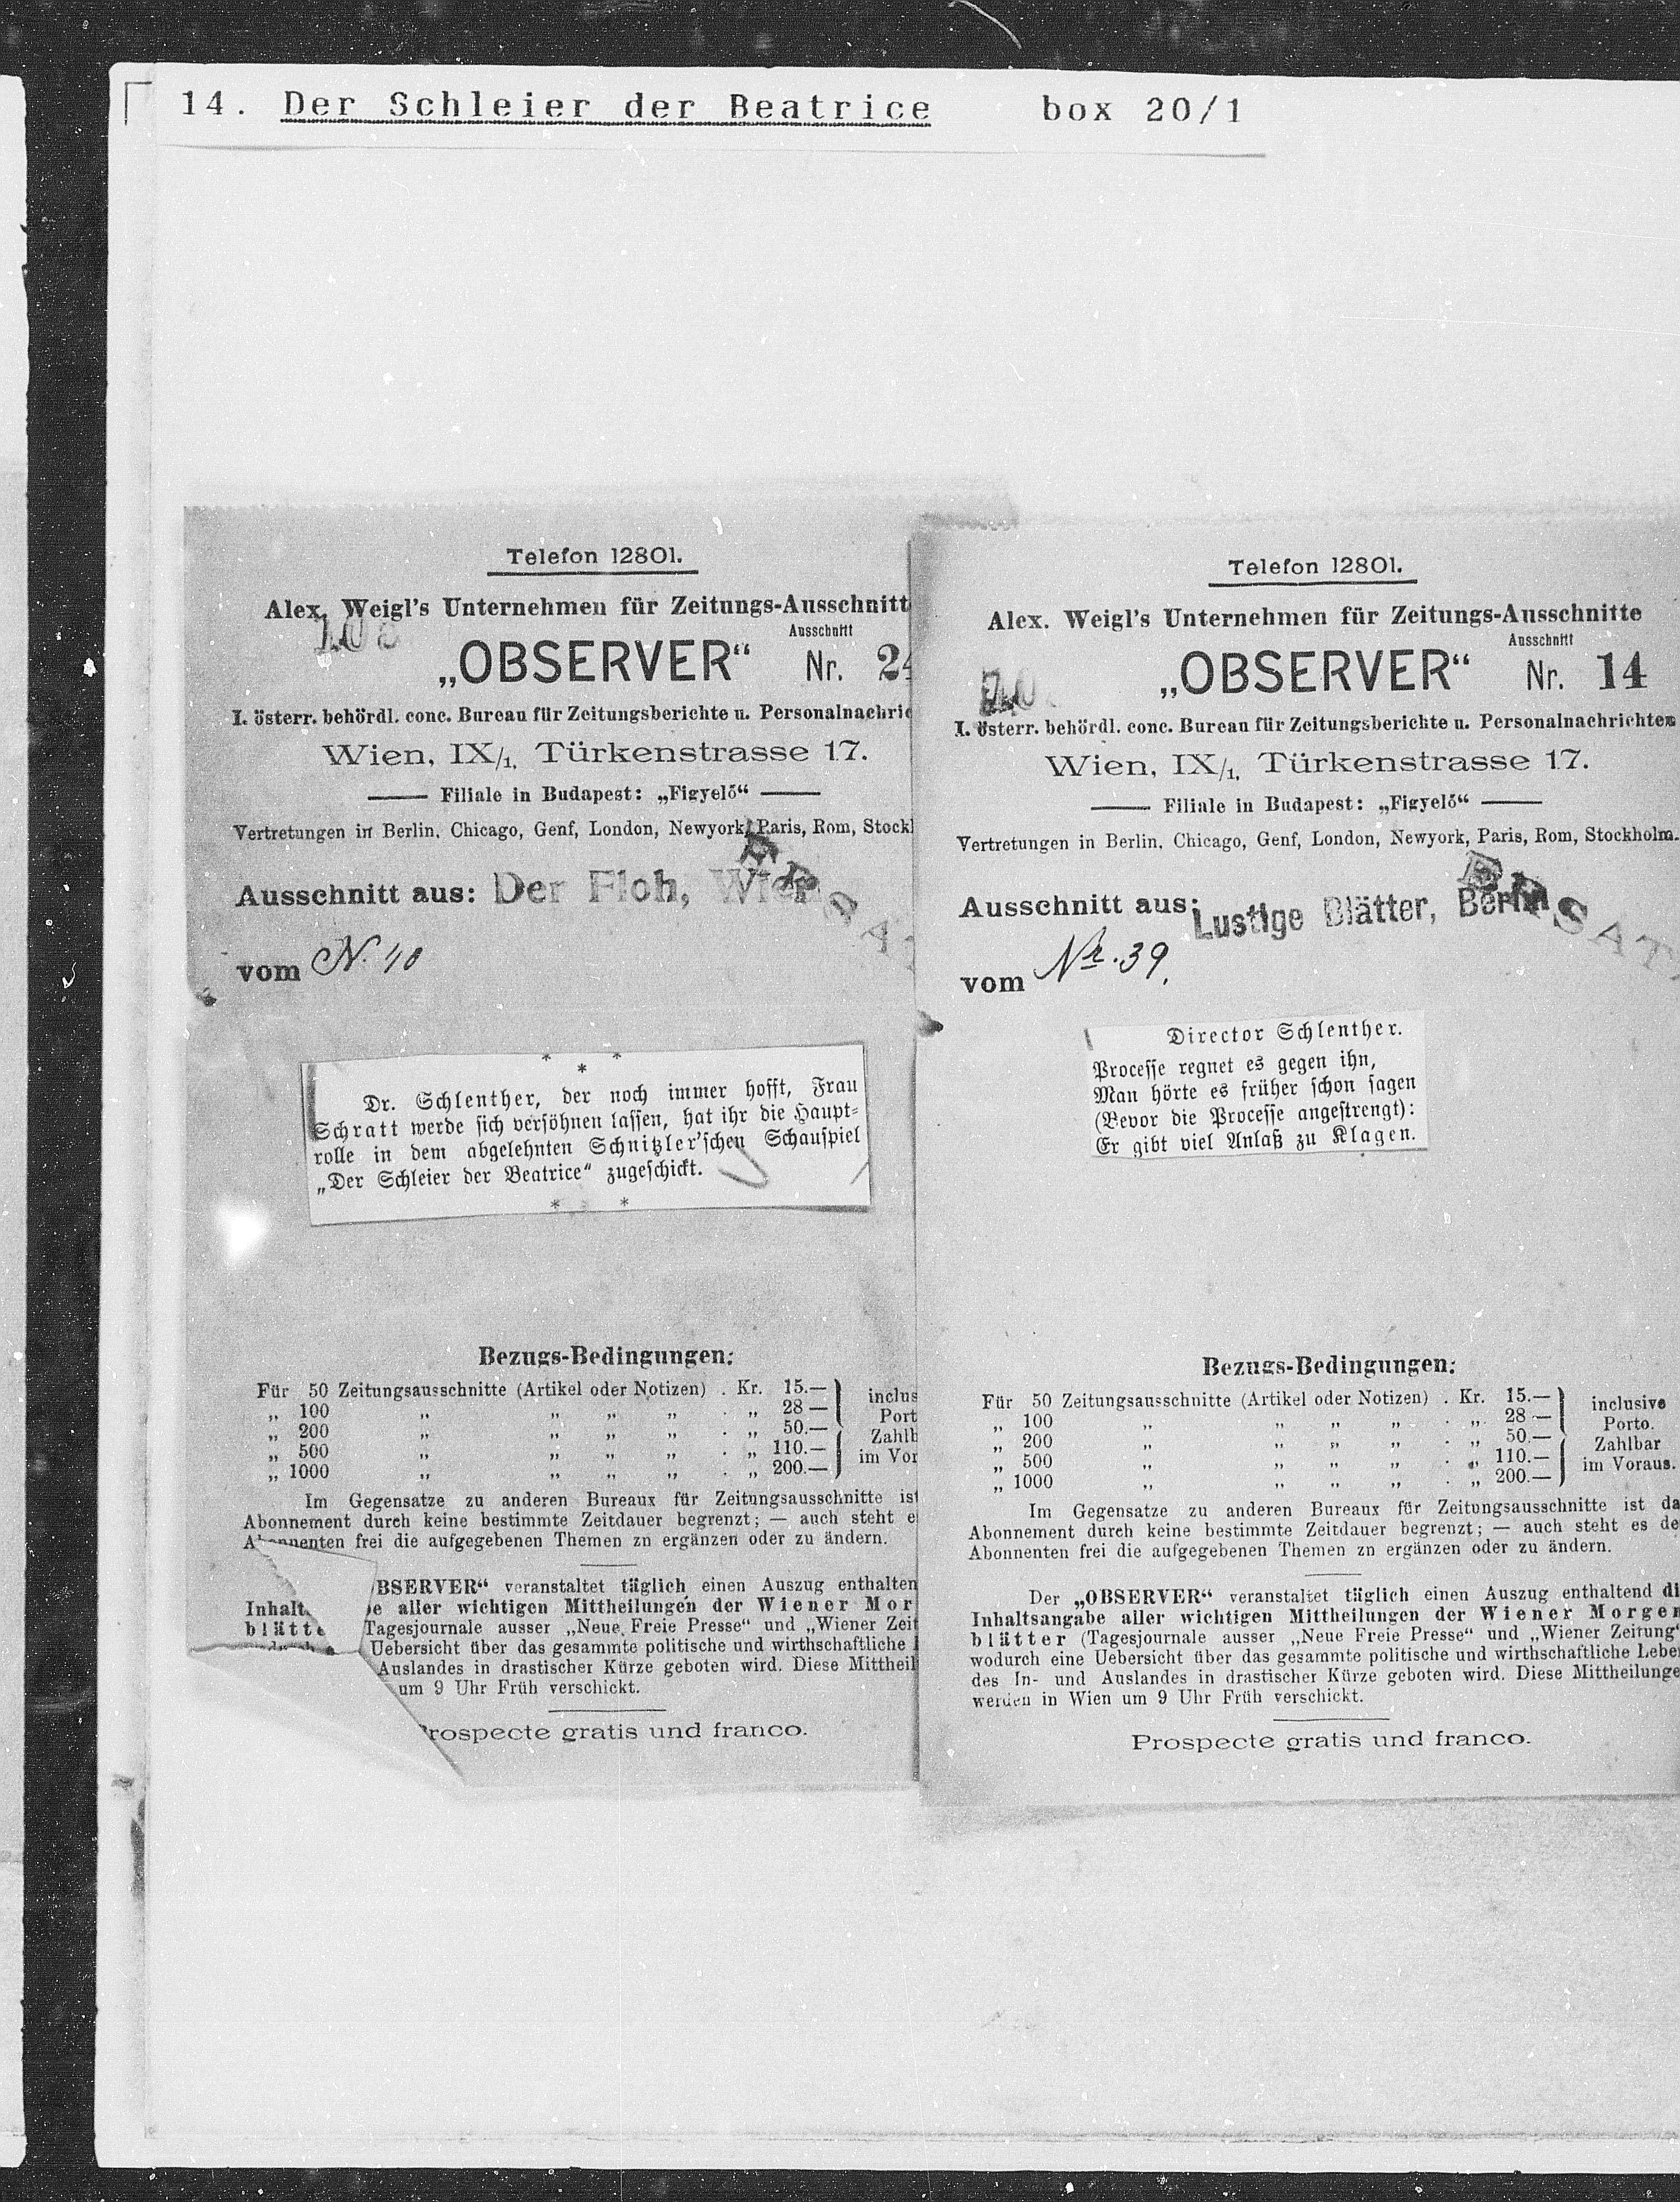 14. Der Schleier der Beatrice box 20/1
Telefon 12801.
Alex. Weigl's Unternehmen für Zeitungs-Ausschnitt
Ausschnitt
„OBSERVER“ Nr. 24
I. österr. behördl. conc. Bureau für Zeitungsberichte u. Personalnachric
Wien, IX/1, Türkenstrasse 17.
Filiale in Budapest: „Figyelő“
Vertretungen in Berlin, Chicago, Genf, London, Newyork, Paris, Rom, Stock
Ausschnitt aus: Der Floh, Wien
vom N. 40
* * *
Dr. Schlenther, der noch immer hofft, Frau
Schratt werde sich versöhnen lassen, hat ihr die Haupt-
rolle in dem abgelehnten Schnitzler'schen Schauspiel
„Der Schleier der Beatrice“ zugeschickt.
* *
Bezugs-Bedingungen:
Für 50 Zeitungsausschnitte (Artikel oder Notizen) . Kr. 15.— inclus
„ 100 „ „ „ „ . „ 28 — Port
„ 200 „ „ „ „ . „ 50.— Zahlb
„ 500 „ „ „ „ . „ 110.— im Vor
„ 1000 „ „ „ „ . „ 200.—
Im Gegensatze zu anderen Bureaux für Zeitungsausschnitte ist
Abonnement durch keine bestimmte Zeitdauer begrenzt; — auch steht e
Abonnenten frei die aufgegebenen Themen zn ergänzen oder zu ändern.
BSERVER“ veranstaltet täglich einen Auszug enthalten
Inhalt e aller wichtigen Mittheilungen der Wiener Mor
blätte Tagesjournale ausser „Neue Freie Presse“ und „Wiener Zeit
Uebersicht über das gesammte politische und wirthschaftliche
Auslandes in drastischer Kürze geboten wird. Diese Mittheil
um 9 Uhr Früh verschickt.
Prospecte gratis und franco.
Telefon 12801.
Alex. Weigl's Unternehmen für Zeitungs-Ausschnitte
Ausschnitt
„OBSERVER“ Nr. 14
I. österr. behördl. conc. Bureau für Zeitungsberichte u. Personalnachrichten
Wien, IX/1, Türkenstrasse 17.
Filiale in Budapest: „Figyelő“
Vertretungen in Berlin, Chicago, Genf, London, Newyork, Paris, Rom, Stockholm.
Ausschnitt aus: Lustige Blätter, Berlin
vom Nr. 39.
Director Schlenther.
Processe regnet es gegen ihn,
Man hörte es früher schon sagen
(Bevor die Processe angestrengt):
Er gibt viel Anlaß zu Klagen.
Bezugs-Bedingungen:
Für 50 Zeitungsausschnitte (Artikel oder Notizen) . Kr. 15.— inclusive
„ 100 „ „ „ „ . „ 28 — Porto.
„ 200 „ „ „ „ . „ 50.— Zahlbar
„ 500 „ „ „ „ . „ 110.— im Voraus.
„ 1000 „ „ „ „ . „ 200.—
Im Gegensatze zu anderen Bureaux für Zeitungsausschnitte ist da
Abonnement durch keine bestimmte Zeitdauer begrenzt; — auch steht es de
Abonnenten frei die aufgegebenen Themen zn ergänzen oder zu ändern.
Der „OBSERVER“ veranstaltet täglich einen Auszug enthaltend di
Inhaltsangabe aller wichtigen Mittheilungen der Wiener Morgen
blätter (Tagesjournale ausser „Neue Freie Presse“ und „Wiener Zeitung“
wodurch eine Uebersicht über das gesammte politische und wirthschaftliche Lebe
des In- und Auslandes in drastischer Kürze geboten wird. Diese Mittheilunge
werden in Wien um 9 Uhr Früh verschickt.
Prospecte gratis und franco.